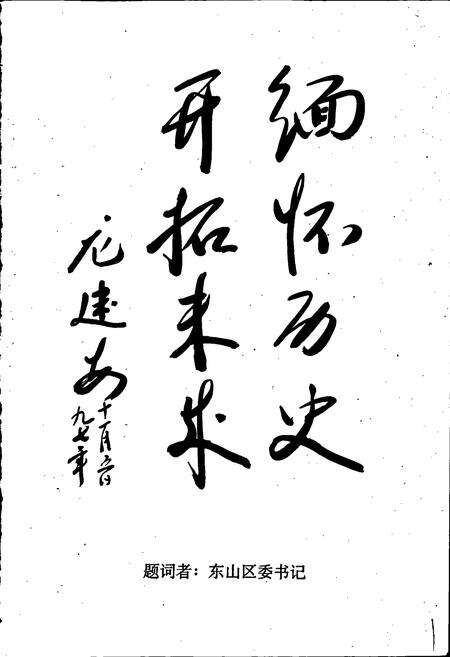 缅怀历史
开拓未来
建安
九七年
题词者：东山区委书记